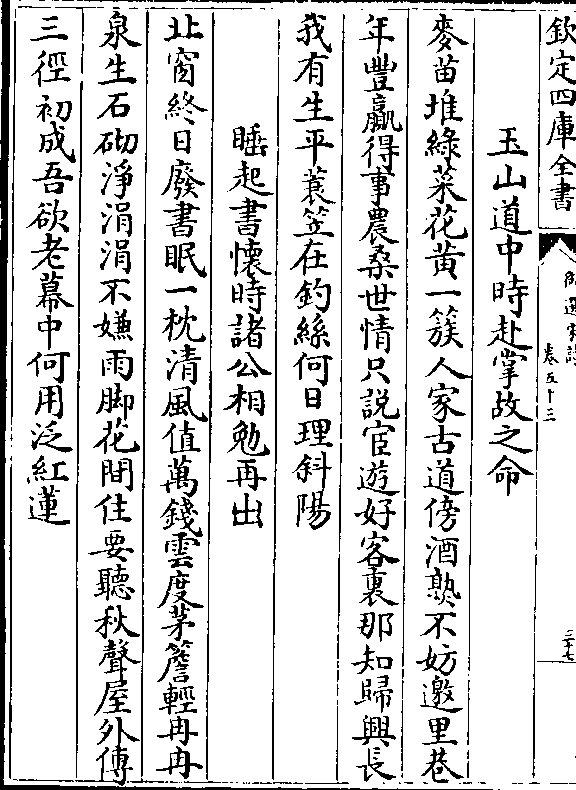 欽定四庫全書
御選宋詩
卷五十三
三十七
玉山道中時赴掌故之命
麥苗堆綠菜花黃一簇人家古道傍酒熟不妨邀里巷
年豐贏得事農桑世情只說宦遊好客裏那知歸興長
我有生平蓑笠在釣絲何日理斜陽
睡起書懷時諸公相勉再出
北窗終日廢書眠一枕清風值萬錢雲度茅簷輕冉冉
泉生石砌淨涓涓不嫌雨脚花間住要聽秋聲屋外傳
三徑初成吾欲老幕中何用泛紅蓮